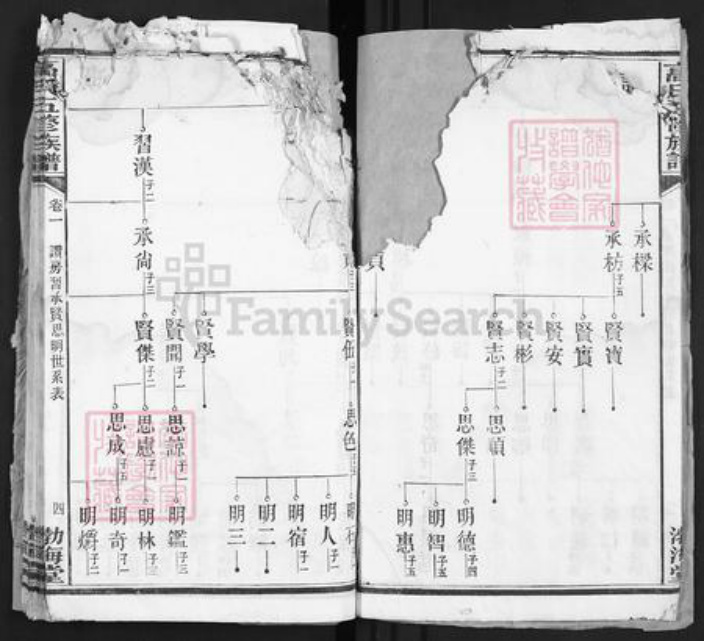 承樑
承枋 子五
賢寶
賢實
賢安
賢彬
賢志 子二
思順
思傑 子三
明德 子四
明智 子五
明惠 子五
賢伍
思色
明人 子一
明宿 子一
明二
明三
習漢 子二
承尚 子三
賢學
賢開 子一
賢傑 子二
思諒 子一
思慮
思成
明鑑 子三
明林
明奇 子一
明爝 子二
高氏五修族譜
卷一
讚房習承賢思明世系表
四
渤海堂
FamilySearch